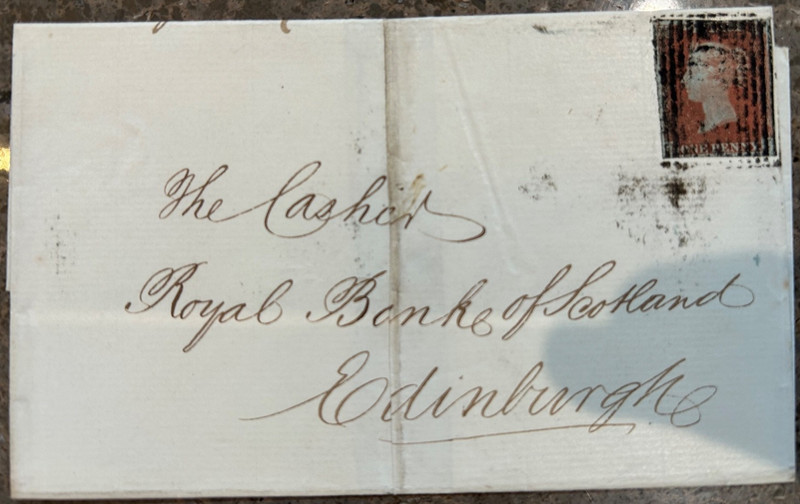 ONE PENNY
The Cashier
Royal Bank of Scotland
Edinburgh